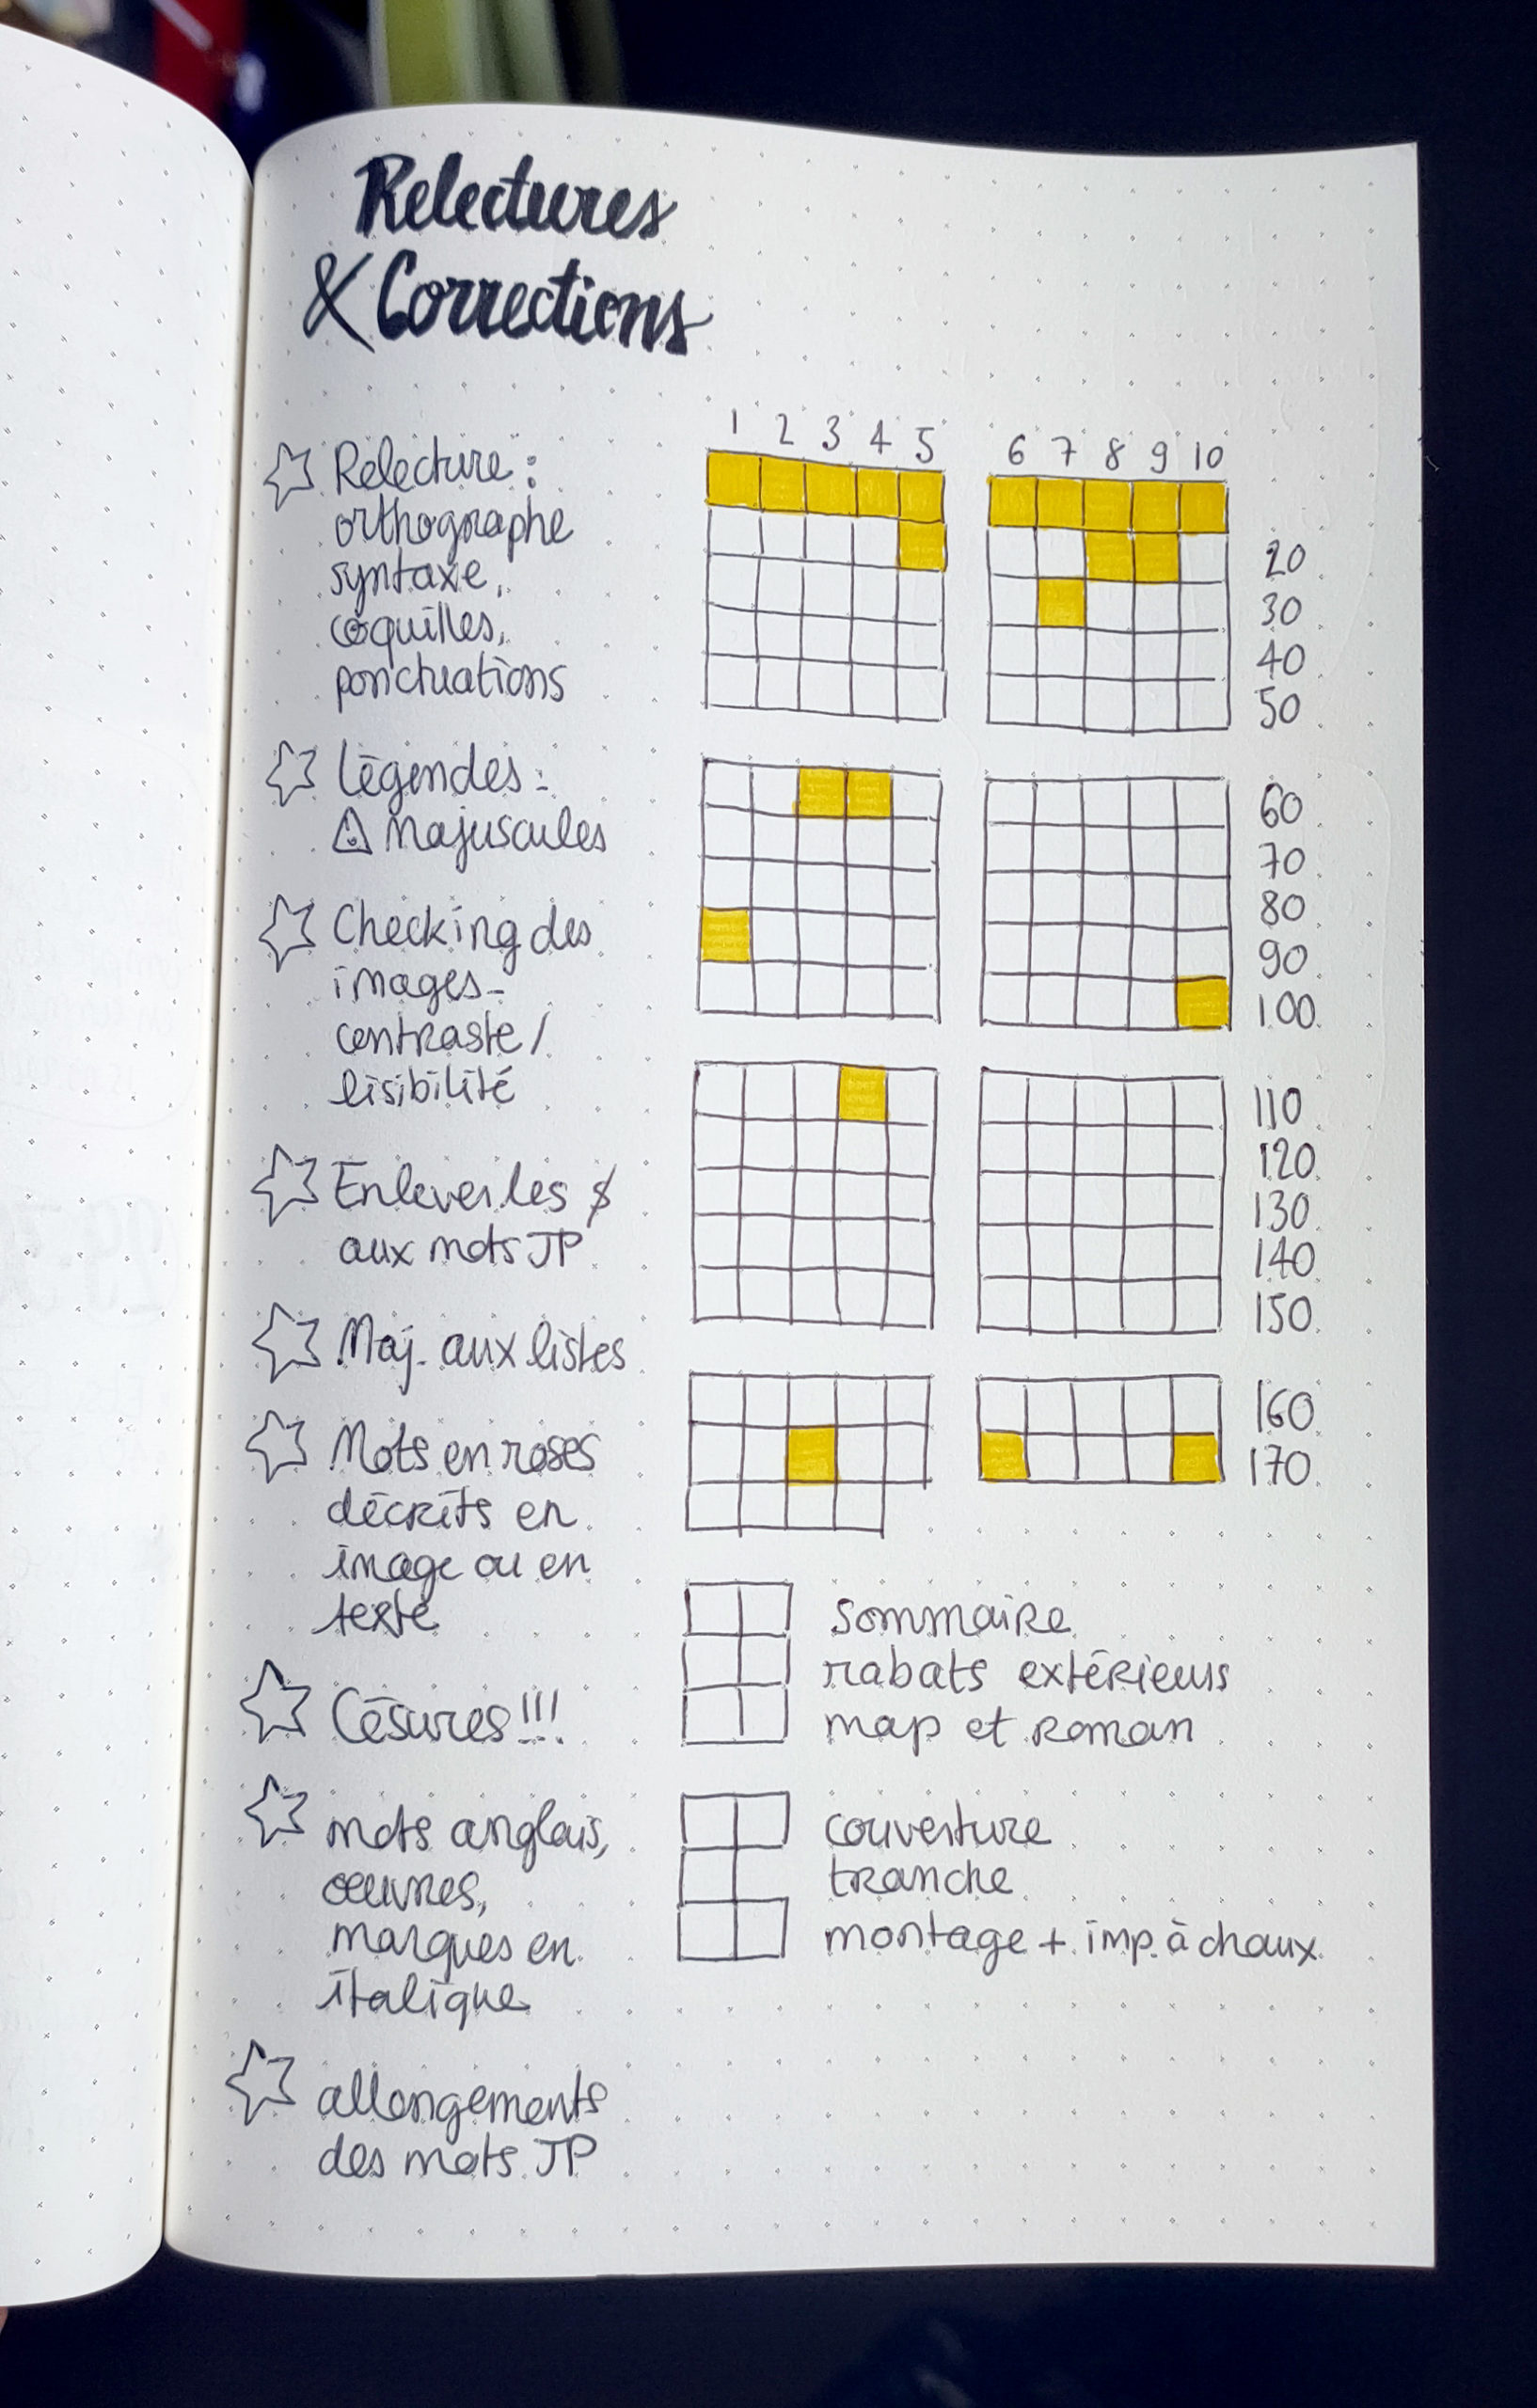 Relectures
& Corrections
☆ Relecture :
orthographe
syntaxe,
coquilles,
ponctuations
☆ Légendes :
⚠ Majuscules
☆ Checking des
images -
contraste /
lisibilité
☆ Enlever les $
aux mots JP
☆ Maj. aux listes
☆ Mots en roses
décrits en
image ou en
texte
☆ Césures !!!
☆ mots anglais,
œuvres,
marques en
italique
☆ allongements
des mots JP
1 2 3 4 5 6 7 8 9 10
20
30
40
50
60
70
80
90
100
110
120
130
140
150
160
170
sommaire
rabats extérieurs
map et roman
couverture
tranche
montage + imp. à chaux